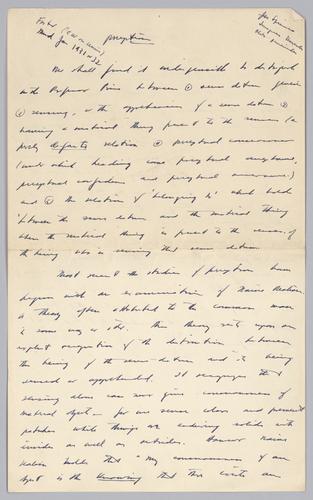 perception
We shall find it indispensable to distinguish
with Professor Price between ① sense datum
② sensing, or the apprehension of a sense datum ③
having a material thing present to the senses (a
purely relation ④ perceptual consciousness
(under which heading come perceptual acceptance,
perceptual confidence and perceptual awareness)
and ⑤ the relation of 'belonging to' which holds
between the sense datum and the material thing
when the material thing is present to the senses of
the being who is sensing that sense datum.
Most recent studies of perception have
begun with an examination of Naive Realism,
a theory often attributed to the common man
in some way or other. This theory rests upon an
explicit recognition of the distinction between
the being of the sense datum and its being
sensed or apprehended. It recognizes that
sensing alone can never give consciousness of
material objects – for we sense colors and
patches while things are enduring solids with
insides as well as outsides. However Naive
Realism holds that "My consciousness of an
object is the knowing that there exists an